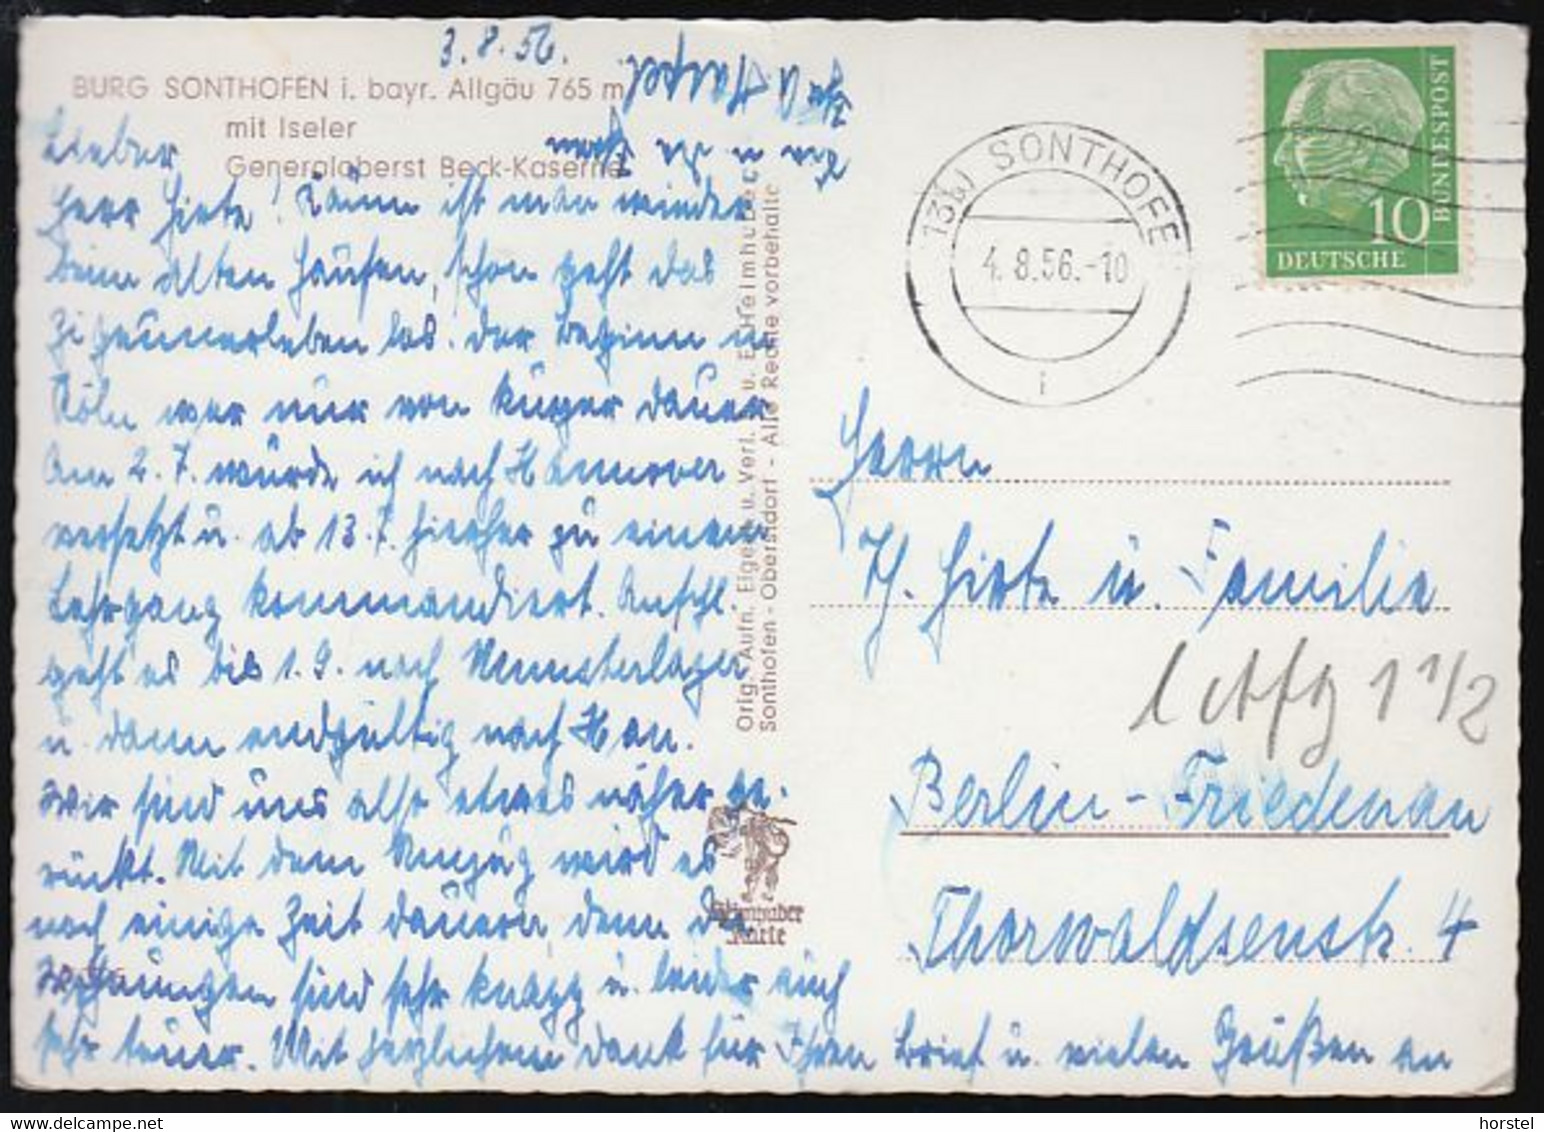 3.8.56.
BURG SONTHOFEN i. bayr. Allgäu 765 m
mit Iseler
Generaloberst Beck-Kaserne
Lieber
Herr Hirte! Kaum ist man wieder
beim alten Haufen, schon geht das
Zigeunerleben los. Der Beginn in
Köln war nur von kurzer Dauer
Am 2.7. wurde ich nach Hannover
versetzt u. ab 13.7. hierher zu einem
Lehrgang kommandiert. Anschl.
geht es bis 1.9. nach Munsterlager
u. dann endgültig nach Han.
Wir sind uns also etwas näher ge-
rückt. Mit dem Umzug wird es
noch einige Zeit dauern, denn die
Wohnungen sind sehr knapp u. leider auch
sehr teuer. Mit herzlichem Dank für Ihren Brief u. vielen Grüßen an
Sie u.
Ihr
Orig. Aufn. Eigent. u. Verl. u. E. Heimhuber,
Sonthofen - Oberstdorf - Alle Rechte vorbehalten
Heimhuber
Karte
(13b) SONTHOFE
4.8.56.-10
i
10
BUNDESPOST
DEUTSCHE
Herrn
H. Hirte u. Familie
1 1/2
Berlin-Friedenau
Thorwaldsenstr. 4
horstel
www.delcampe.net